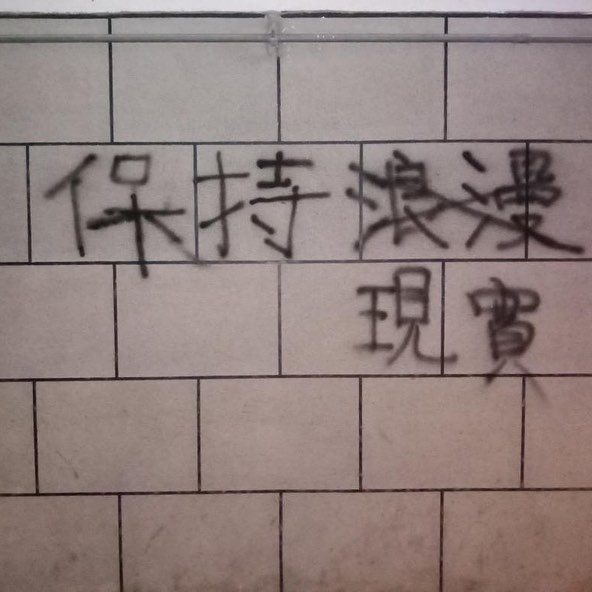 保持浪漫
現實